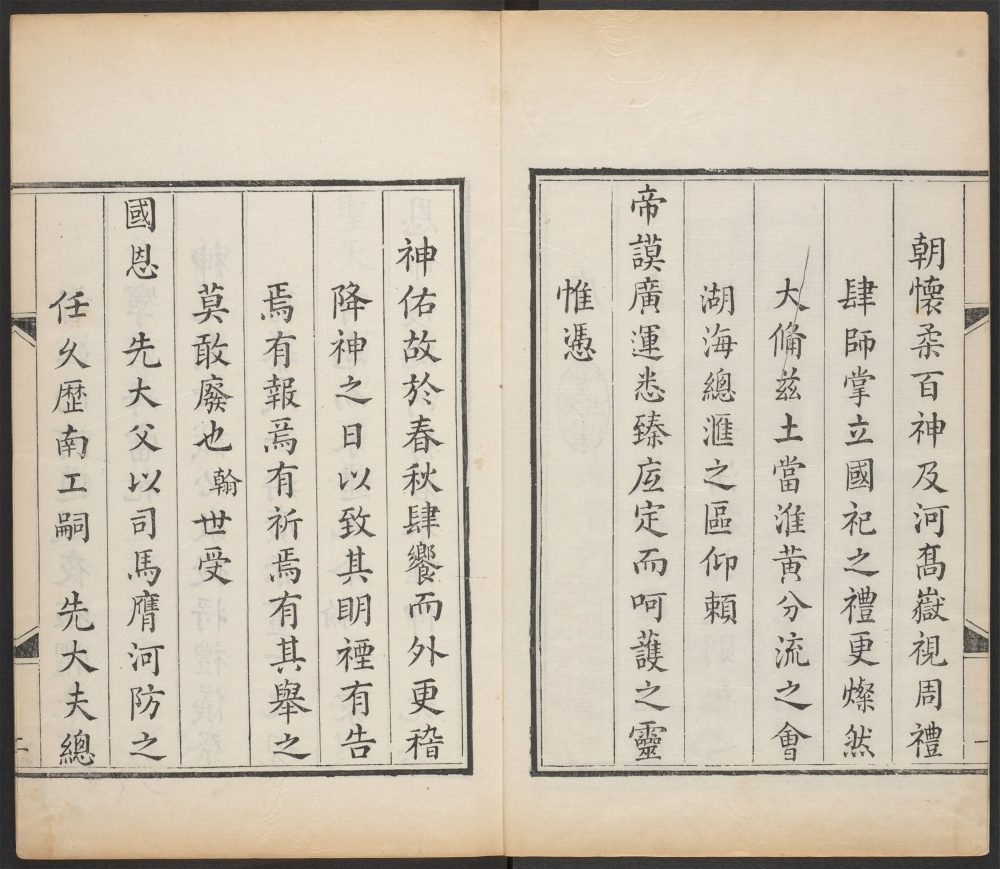 朝懷柔百神及河喬嶽視周禮
肆師掌立國祀之禮更燦然
大備兹土當淮黄分流之會
湖海總滙之區仰賴
帝謨廣運悉臻底定而呵護之靈
惟憑
神佑故於春秋肆饗而外更稽
降神之日以致其明禋有告
焉有報焉有祈焉有其舉之
莫敢廢也翰世受
國恩先大父以司馬膺河防之
任久歴南工嗣先大夫總
一
二